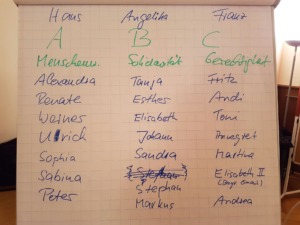 Hans Angelika Franz
A B C
Menschenw. Solidarität Gerechtigkeit
Alexandra Tanja Fritz
Renate Esther Andi
Werner Elisabeth Toni
Ulrich Johann Annegret
Sophia Sandra Martina
Sabina Stephan Elisabeth II
Peter Stephan
Markus Andrea